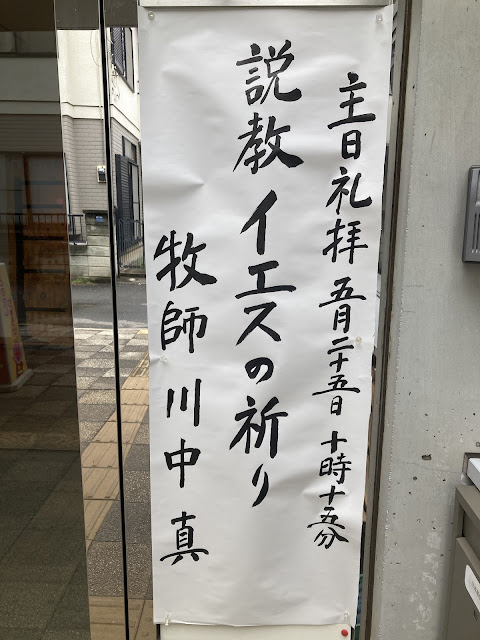 主日礼拝 五月二十五日 十時十五分
説教 イエスの祈り
牧師 川中 真